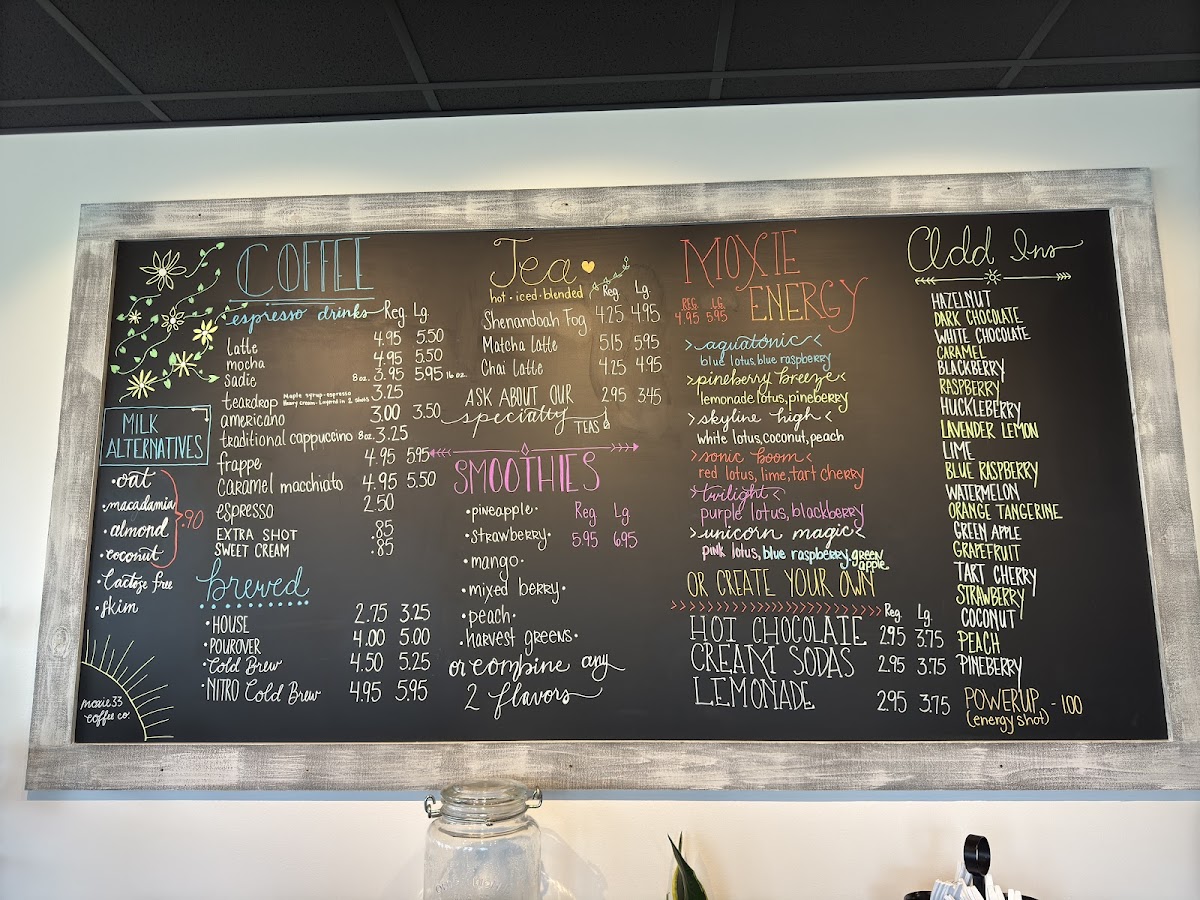 COFFEE
espresso drinks Reg. Lg.
latte 4.95 5.50
mocha 4.95 5.50
Sadie 8oz. 3.95 5.95 16oz.
teardrop Maple syrup·espresso 3.25
Heavy Cream·Layered in 2 shots
americano 3.00 3.50
traditional cappuccino 8oz. 3.25
frappe 4.95 5.95
caramel macchiato 4.95 5.50
espresso 2.50
EXTRA SHOT .85
SWEET CREAM .85
brewed
·HOUSE 2.75 3.25
·POUROVER 4.00 5.00
·Cold Brew 4.50 5.25
·NITRO Cold Brew 4.95 5.95
MILK
ALTERNATIVES
·oat
·macadamia
·almond .90
·coconut
·Lactose free
·skim
moxie 33
coffee co.
Tea
hot·iced·blended Reg. Lg.
Shenandoah Fog 4.25 4.95
Matcha latte 5.15 5.95
Chai latte 4.25 4.95
ASK ABOUT OUR 2.95 3.45
specialty TEAS
SMOOTHIES
·pineapple· Reg Lg
·strawberry· 5.95 6.95
·mango·
·mixed berry·
·peach·
·harvest greens·
or combine any
2 flavors
MOXIE
ENERGY
REG. LG.
4.95 5.95
>aquatonic<
blue lotus, blue raspberry
>pineberry breeze<
lemonade lotus, pineberry
>skyline high<
white lotus, coconut, peach
>sonic boom<
red lotus, lime, tart cherry
>twilight<
purple lotus, blackberry
>unicorn magic<
pink lotus, blue raspberry, green
apple
OR CREATE YOUR OWN
Reg Lg.
HOT CHOCOLATE 2.95 3.75
CREAM SODAS 2.95 3.75
LEMONADE 2.95 3.75
Add Ins
HAZELNUT
DARK CHOCOLATE
WHITE CHOCOLATE
CARAMEL
BLACKBERRY
RASPBERRY
HUCKLEBERRY
LAVENDER LEMON
LIME
BLUE RASPBERRY
WATERMELON
ORANGE TANGERINE
GREEN APPLE
GRAPEFRUIT
TART CHERRY
STRAWBERRY
COCONUT
PEACH
PINEBERRY
POWERUP - 1.00
(energy shot)